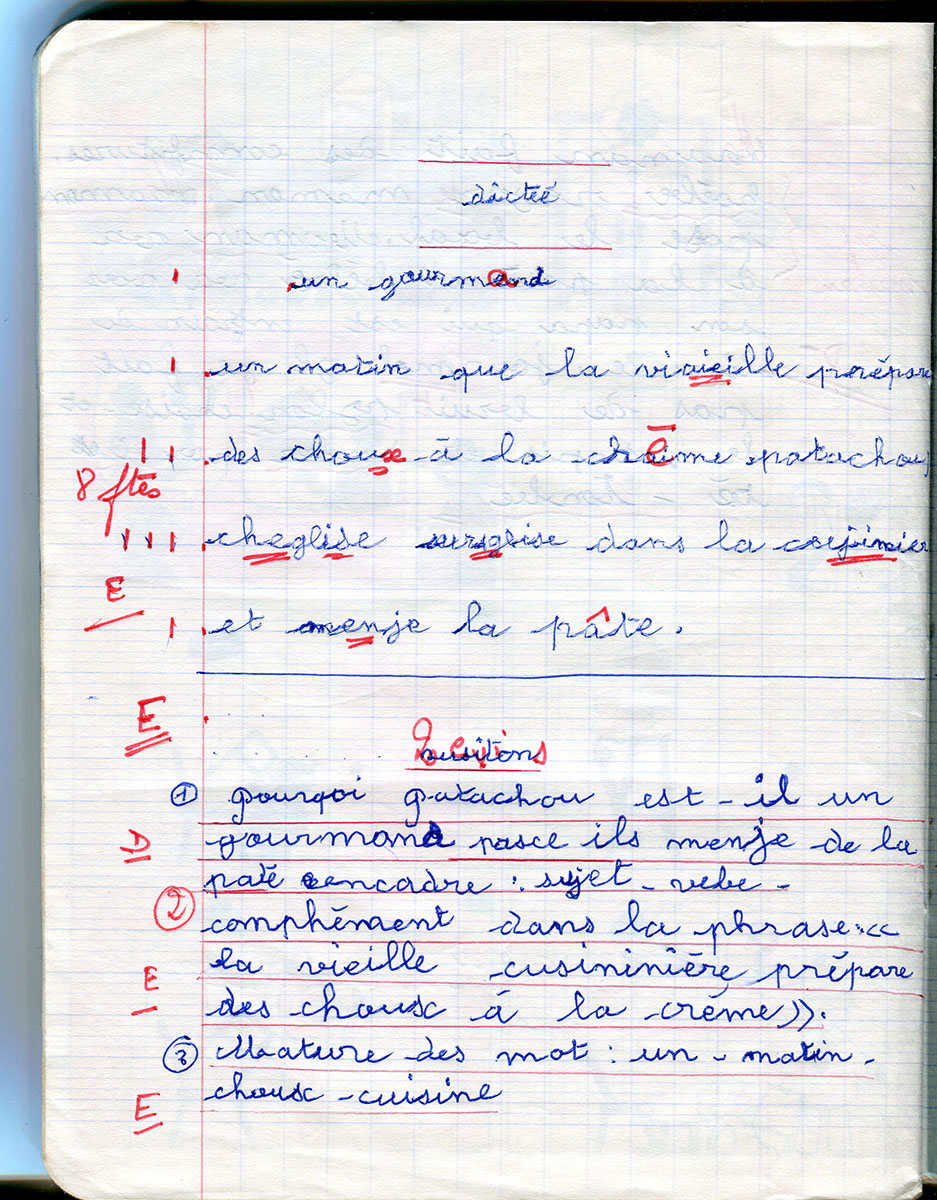 dictée
un gourmand
un matin que la viaieille prépare
des choux à la crême patachou
cheglise dans la cuijinier
8 ftes
E
et menje la pâte.
E
① pourqoi patachou est-il un
A
gourmand pasce ils menje de la
paté encadre : sujet - vebe -
②
comphément dans la phrase:«
E
la vieille cusininière prépare
des choux à la crême».
③ Nature des mot : un - matin -
E
choux - cuisine